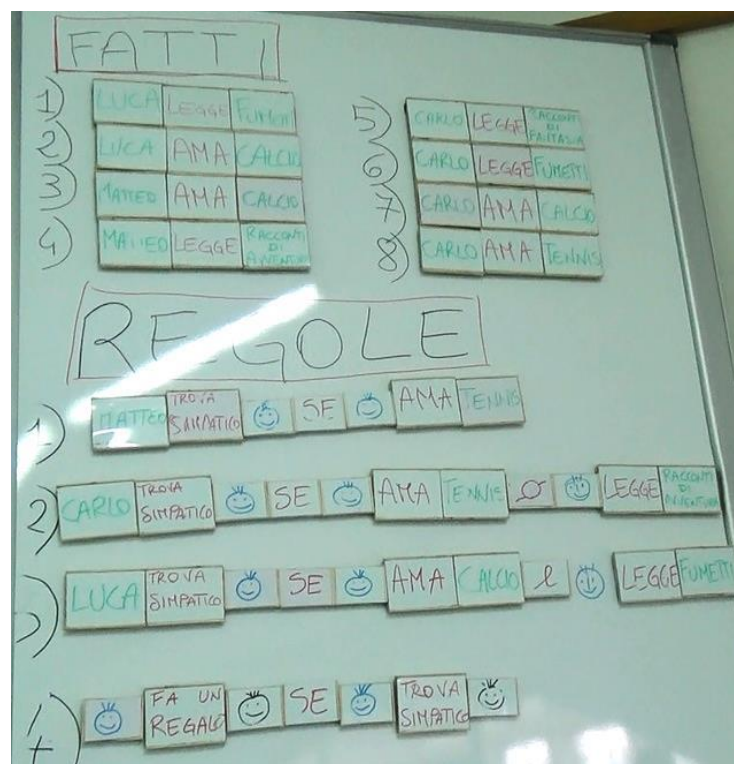 FATTI
1) LUCA LEGGE FUMETTI
2) LUCA AMA CALCIO
3) MATTEO AMA CALCIO
4) MATTEO LEGGE RACCONTI DI AVVENTURA
5) CARLO LEGGE RACCONTI DI FANTASIA
6) CARLO LEGGE FUMETTI
7) CARLO AMA CALCIO
8) CARLO AMA TENNIS
REGOLE
1) MATTEO TROVA SIMPATICO SE AMA TENNIS
2) CARLO TROVA SIMPATICO SE AMA TENNIS O LEGGE RACCONTI DI AVVENTURA
3) LUCA TROVA SIMPATICO SE AMA CALCIO e LEGGE FUMETTI
4) FA UN REGALO SE TROVA SIMPATICO